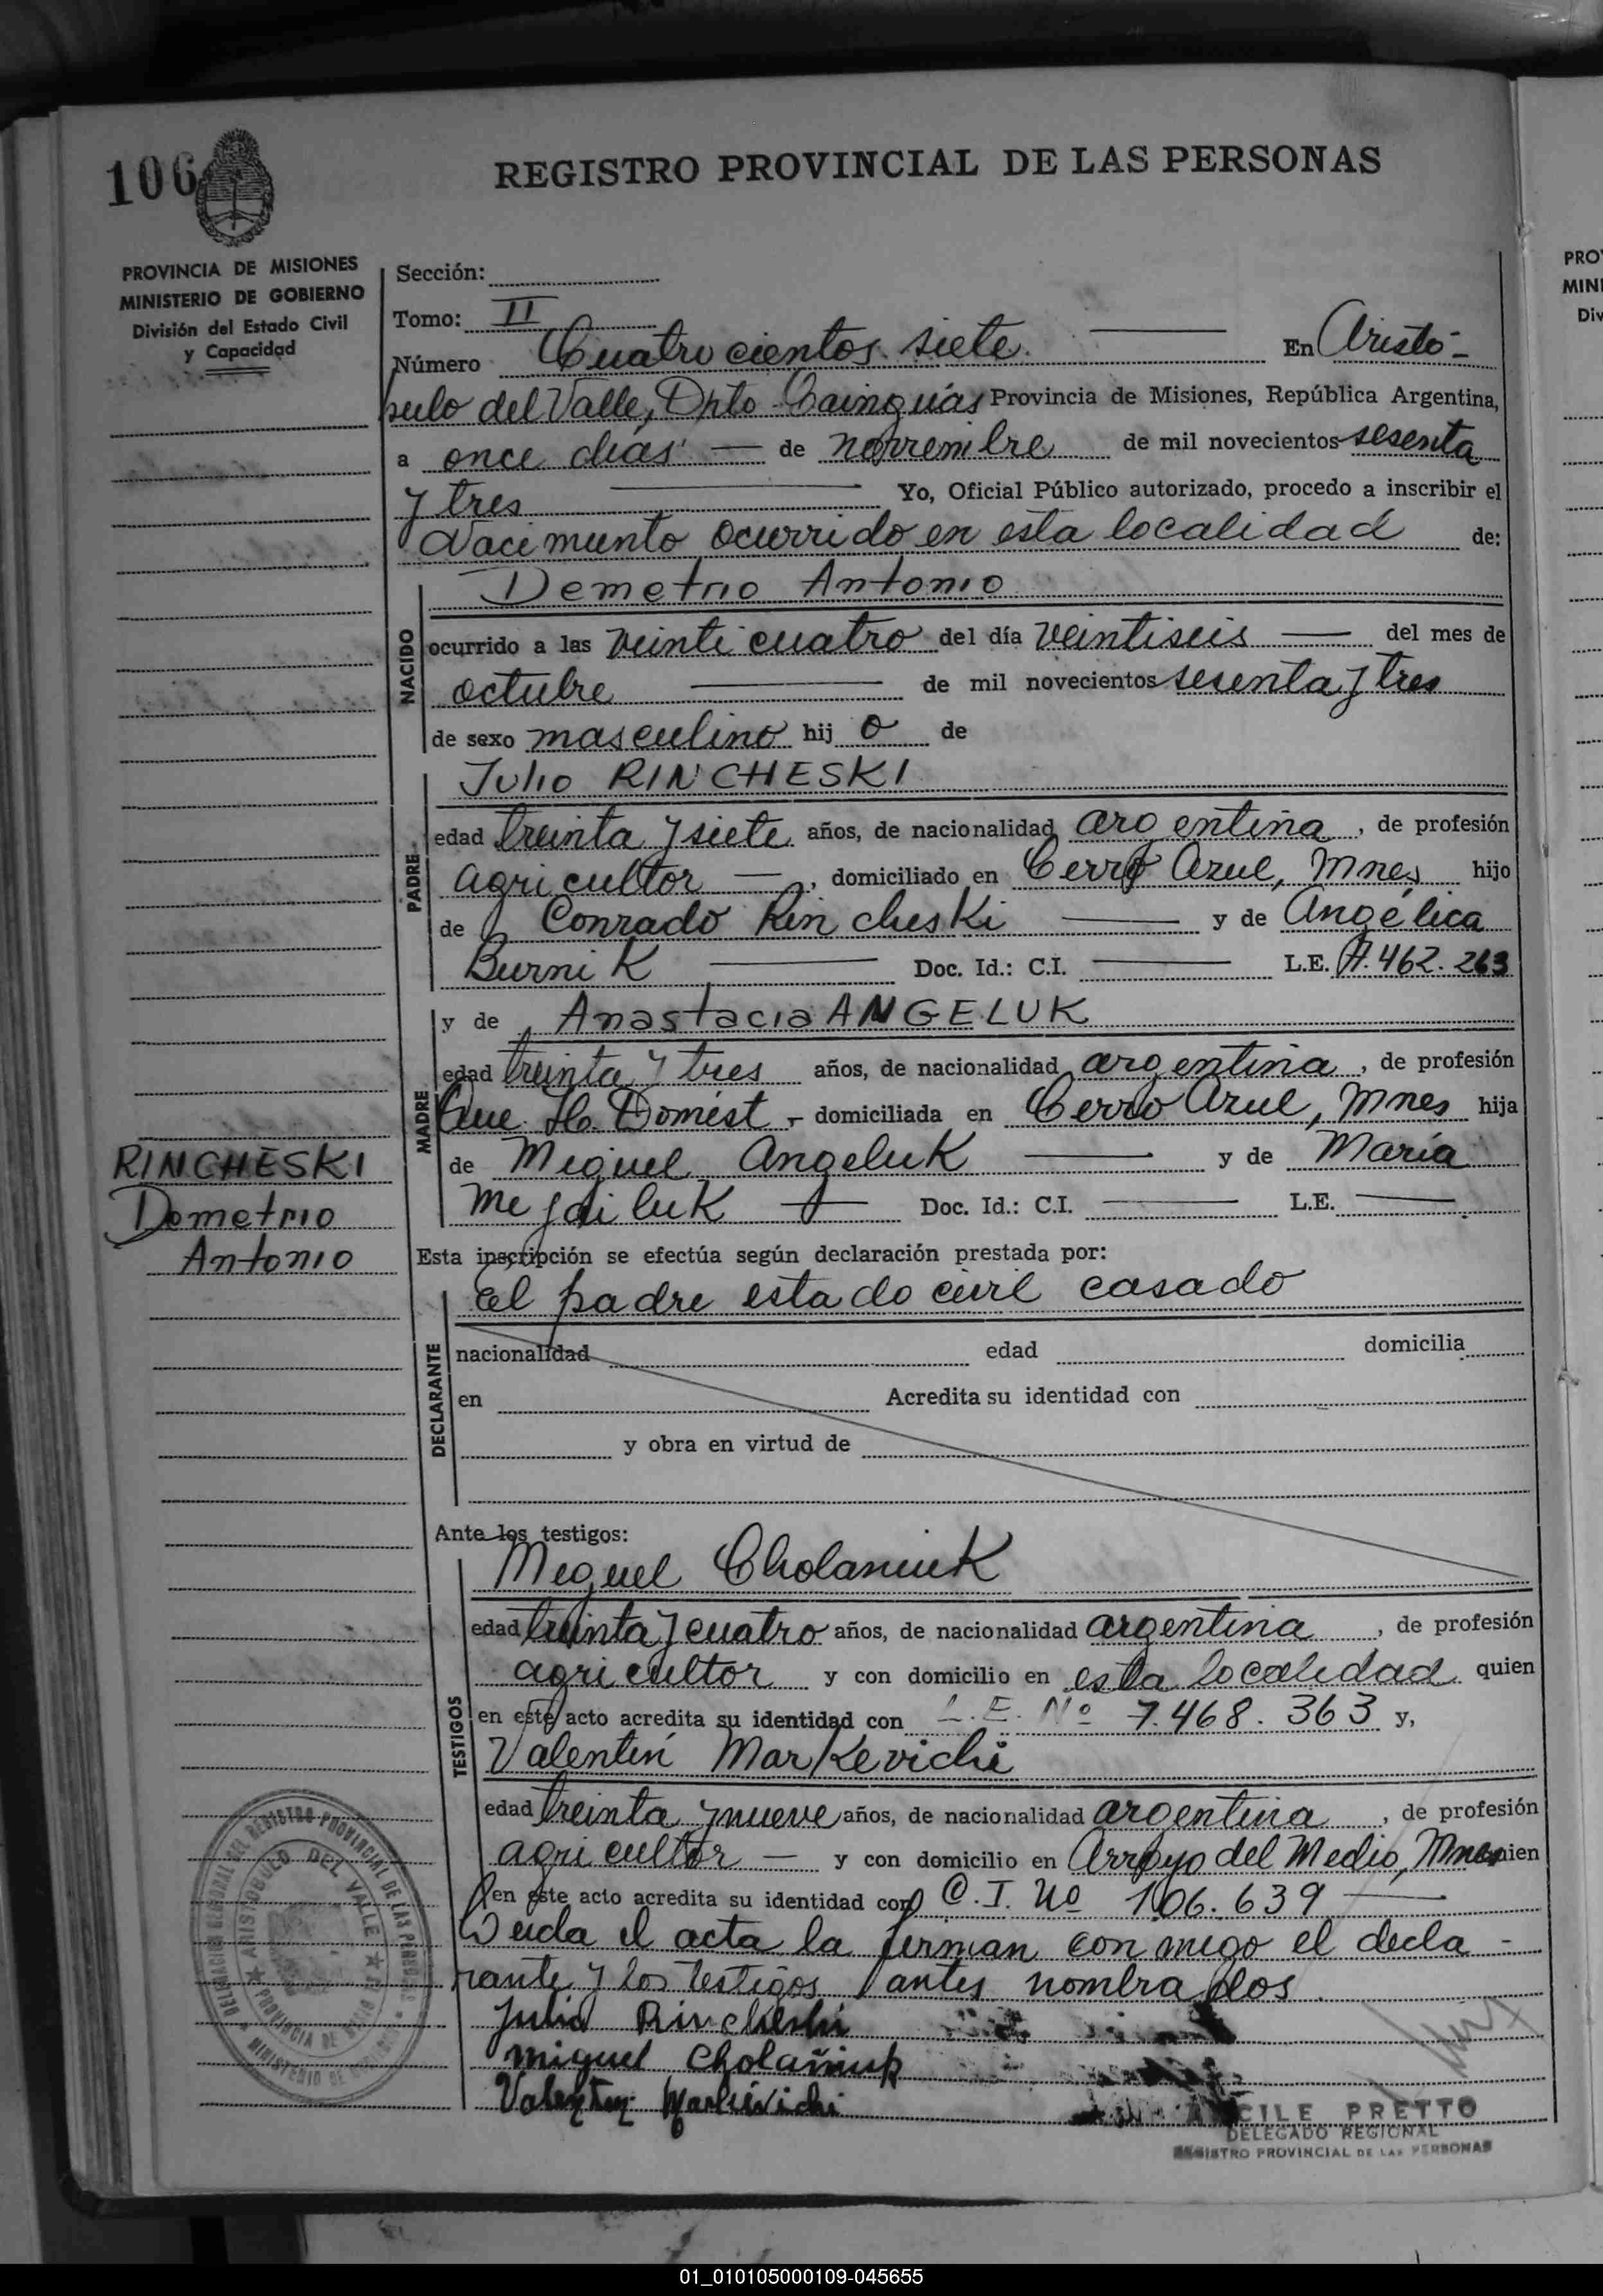 106
REGISTRO PROVINCIAL DE LAS PERSONAS
PROVINCIA DE MISIONES
MINISTERIO DE GOBIERNO
División del Estado Civil
y Capacidad
Sección:
Tomo: II
Número Cuatrocientos siete En Aristó-
bulo del Valle, Dpto Cainguás Provincia de Misiones, República Argentina,
a once días de noviembre de mil novecientos sesenta
y tres Yo, Oficial Público autorizado, procedo a inscribir el
Nacimiento ocurrido en esta localidad de:
NACIDO
Demetrio Antonio
ocurrido a las veinticuatro del día veintiseis del mes de
octubre de mil novecientos sesenta y tres
de sexo masculino hij o de
PADRE
Julio RINCHESKI
edad treinta y siete años, de nacionalidad argentina, de profesión
agricultor, domiciliado en Cerro Azul, Mnes hijo
de Conrado Rincheski y de Angélica
Burnik Doc. Id.: C.I. L.E. 7.462.263
MADRE
y de Anastacia ANGELUK
edad treinta y tres años, de nacionalidad argentina, de profesión
Que. H. Domést, domiciliada en Cerro Azul, Mnes hija
de Miguel Angeluk y de María
Doc. Id.: C.I. L.E.
RINCHESKI
Demetrio
Antonio
Esta inscripción se efectúa según declaración prestada por:
DECLARANTE
El padre estado civil casado
nacionalidad edad domicilia
en Acredita su identidad con
y obra en virtud de
Ante los testigos:
TESTIGOS
Miguel Cholaniuk
edad treinta y cuatro años, de nacionalidad argentina, de profesión
agricultor y con domicilio en esta localidad quien
en este acto acredita su identidad con L.E. Nº 7.468.363 y,
Valentín Markevichi
edad treinta y nueve años, de nacionalidad argentina, de profesión
agricultor y con domicilio en Arroyo del Medio, Mnes quien
en este acto acredita su identidad con C.I. Nº 106.639
Leida el acta la firman conmigo el decla-
rante y los testigos antes nombrados
Julio Rincheski
Miguel Cholañiuk
Valentin Markivichi
DELEGACION REGIONAL DEL REGISTRO PROVINCIAL DE LAS PERSONAS
ARISTOBULO DEL VALLE
PROVINCIA DE MISIONES
MINISTERIO DE GOBIERNO
CILE PRETTO
DELEGADO REGIONAL
REGISTRO PROVINCIAL DE LAS PERSONAS
PRO
MINI
Div
01_010105000109-045655